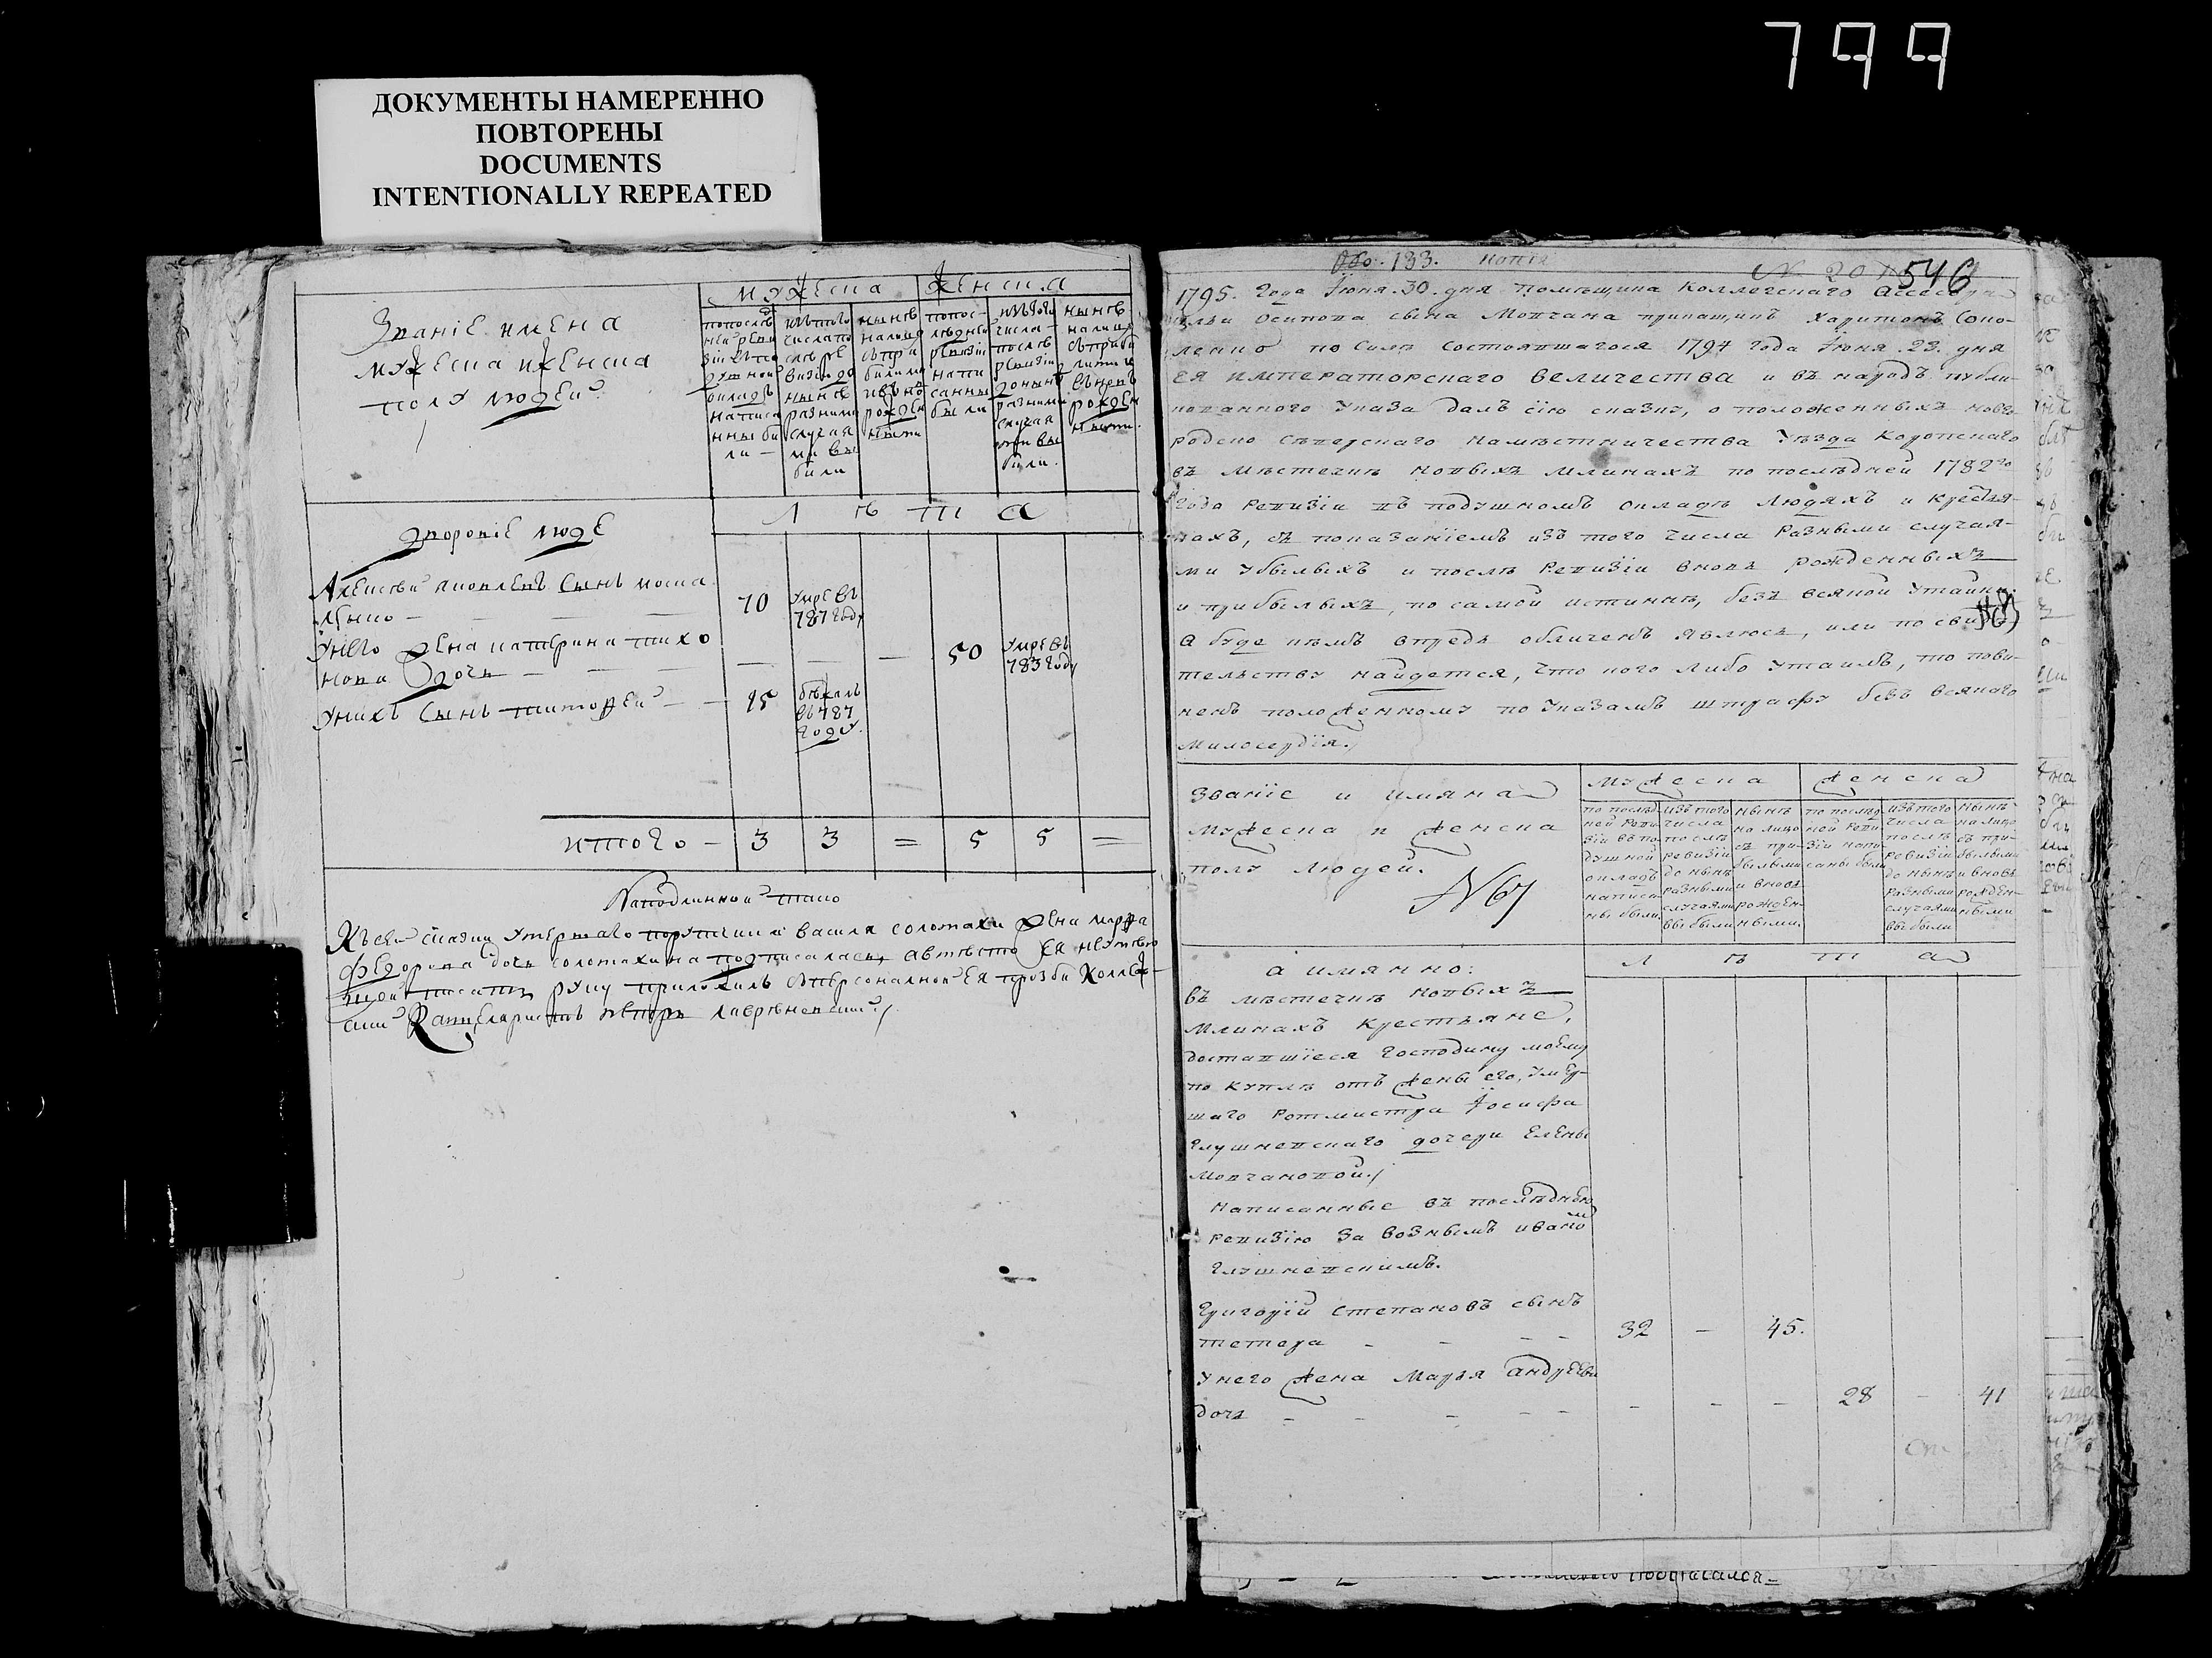 799
ДОКУМЕНТЫ НАМЕРЕННО
ПОВТОРЕНЫ
DOCUMENTS
INTENTIONALLY REPEATED
Званіе имена
мужеска и женска
полу людей
мужеска женска
по послѣд
ней реви
зіи въ по
душной
окладъ
написа
нны бы
ли
изъ того
числа по
слѣ ре
визіи до
нынѣ
разними
случая
ми вы
были
нынѣ
на лицо
съ при
былими
и вно
рожден
ными
по пос-
лѣдней
ревизіи
напи
санны
были
изъ того
числа
послѣ
ревизіи
до нынѣ
разними
случая
ми вы
были.
нынѣ
на лицо
съ прибы
лими и
вновь
рожден
ными.
Лѣта
дворовіе люде
Алексѣй яковлевъ сынъ
70 умре въ 787 году
у него жена катерина тихо
нова дочь 50 умре въ 783 году
у нихъ сынъ тимофей 15 бѣжалъ въ 787 году.
итого - 3 3 = 5 5 =
На подлинной тако
Къ сей сказки умершаго порутчика василя солотахи жена марфа
федорова дочь солотахина подписалась, а вмѣсто ея неумѣю
щой писать руку приложилъ по персоналной ея прозби Коллеж-
ский Канцеляристъ петръ лавреневский
Обо. 133. копія
546
1795. года Іюня. 30. дня помѣщика Коллежскаго Ассесора
ильи осипова сына Мовчана прикащикъ Харитонъ Соко-
ленко по силѣ состоявшагося 1794 года Іюня. 23. дня
ЕЯ ИМПЕРАТОРСКАГО ВЕЛИЧЕСТВА и въ народъ публи-
кованного Указа далъ сію сказку, о положенныхъ новго-
родско сѣверскаго намѣстничества Уѣзда Коропскаго
въ мѣстечкѣ новыхъ млинахъ по послѣдней 1782го
года ревизіи въ подушномъ окладѣ Людяхъ и крестья-
нахъ, съ показаніемъ изъ того числа разными случая-
ми убылыхъ и послѣ ревизіи вновь рожденныхъ
и прибылыхъ, по самой истиннѣ, безъ всякой утайки;
а буде кѣмъ впредь обличенъ явлюсь, или по свидѣ-
тельству найдется, что кого либо утаилъ, то пови-
ненъ положенному по указамъ штрафу безъ всякаго
милосердія.
званіе и имяна
мужеска и женска
полу людей.
№67
мужеска женска
по послѣд
ней реви-
зіи въ по
душной
окладъ
написа-
ны были.
изъ того
числа
послѣ
ревизіи
до нынѣ
разными
случаями
выбыли
нынѣ
на лицо
съ при-
былыми
и вновь
рожден-
ными.
по послѣд
ней реви-
зіи напи-
саны были
изъ того
числа
послѣ
ревизіи
до нынѣ
разными
случаями
выбыли
нынѣ
на лицо
съ при-
былыми
и вновь
рожден-
ными
Лѣта
а имянно:
въ мѣстечкѣ новыхъ
млинахъ крестьяне,
доставшіеся господину моему
по куплѣ отъ жены его, умер-
шаго ротмистра Іосифа
глушневскаго дочери елены
мовчановой.
написанные въ послѣднюю
ревизію за вознымъ иваномъ
глушневскимъ.
Григорій степановъ сынъ
тетера 32 - 45.
у него жена марья андреева
дочь - - - 28 - 41